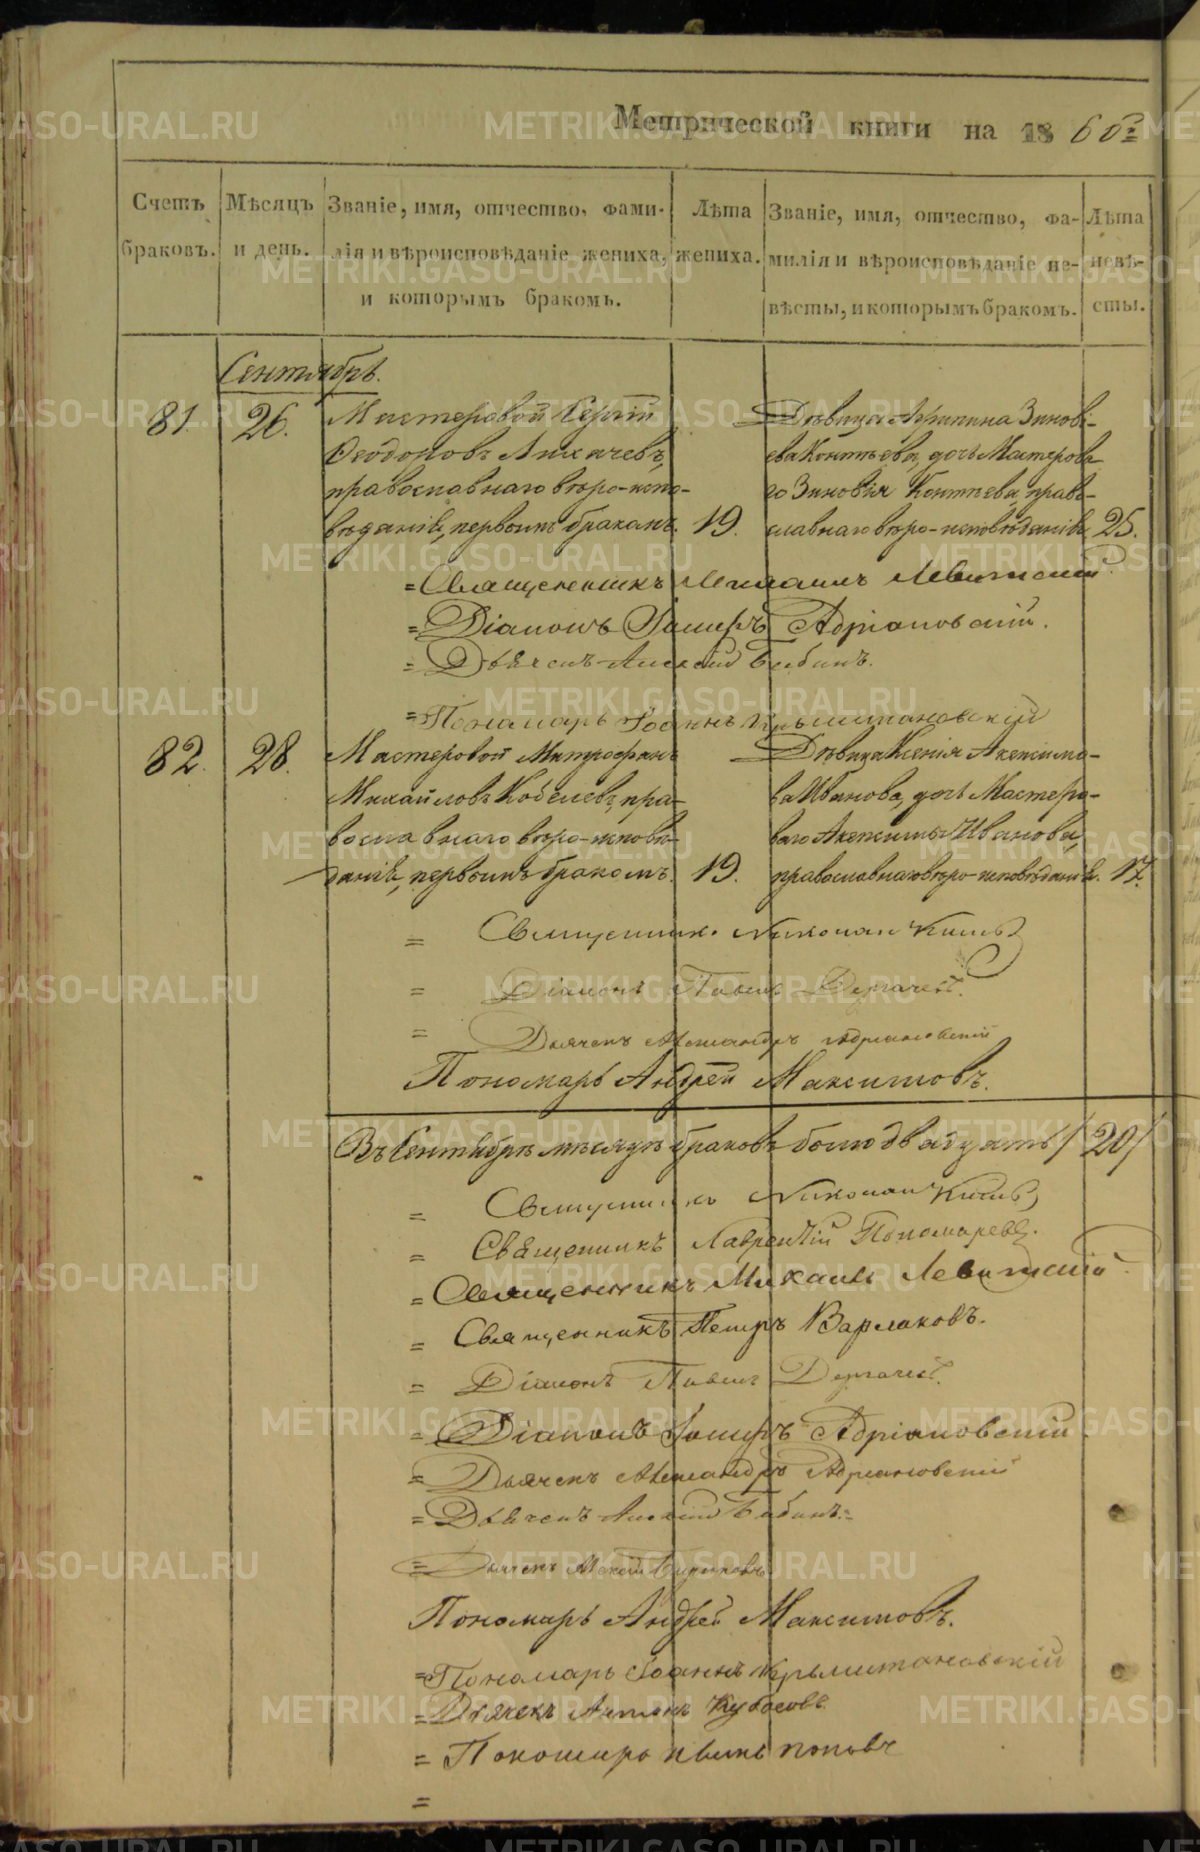 Метрической книги на 1860 г.
Счетъ браковъ.
Мѣсяцъ и день.
Званіе, имя, отчество, фами-
лія и вѣроисповѣданіе жениха,
и которымъ бракомъ.
Лѣта жениха.
Званіе, имя, отчество, фа-
милія и вѣроисповѣданіе не-
вѣсты, и которымъ бракомъ.
Лѣта невѣ-
сты.
Сентябрь.
81. 26.
Мастеровой Сергій
Ѳеодоровъ Лихачевъ,
православнаго вѣро-испо-
вѣданія, первымъ бракомъ. 19.
Дѣвица Агрипина Зинові-
ева Коптѣева, дочь Мастерова-
го Зиновія Коптѣева, право-
славнаго вѣро-исповѣданія. 25.
= Священникъ Михаилъ Левитскій
= Діаконъ Адріановскій.
= Дьячекъ Алексій Бабинъ.
= Пономарь Іоаннъ
82. 28.
Мастеровой Митрофанъ
Михайловъ Кобелевъ, пра-
вославнаго вѣро-исповѣ-
данія, первымъ бракомъ. 19.
Дѣвица Ксенія
ва Иванова, дочь Мастеро-
ваго Иванова,
православнаго вѣро-исповѣданія. 17.
= Священникъ Николай
= Діаконъ Павелъ Дергачевъ.
= Дьячекъ Александръ Адріановскій
Пономарь Андрей Максимовъ.
Въ Сентябрѣ мѣсяцѣ браковъ было двадцать /20/
= Священникъ Николай
= Священникъ Лаврентій Пономаревъ.
= Священникъ Михаилъ Левитскій
= Священникъ Петръ Варлаковъ.
= Діаконъ Павелъ Дергачевъ.
= Діаконъ Адріановскій
= Дьячекъ Александръ Адріановскій
= Дьячекъ Алексій Бабинъ.
= Дьячекъ
Пономарь Андрей Максимовъ.
= Пономарь Іоаннъ
= Дьячекъ Кубасовъ
= Поповъ
=
METRIKI.GASO-URAL.RU